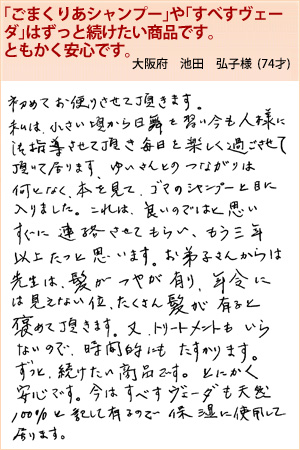 「ごまくりあシャンプー」や「すべすヴェー
ダ」はずっと続けたい商品です。
ともかく安心です。
大阪府　池田　弘子様 (74才)
初めてお便りさせて頂きます。
私は、小さい頃から日舞を習い今も人様に
ご指導させて頂き毎日を楽しく過ごさせて
頂いて居ります。ゆいさんとのつながりは
何となく、本を見て、ゴマのシャンプーと目に
入りました。これは、良いのではと思い
すぐに連絡させてもらい、もう三年
以上たつと思います。お弟子さんからは
先生は、髪がつやが有り、年令に
は見えない位、たくさん髪が有ると
褒めて頂きます。又、トリートメントもいら
ないので、時間的にもたすかります。
ずっと、続けたい商品です。とにかく
安心です。今はすべすヴェーダも天然
100%と記して有るので保湿に使用して
居ります。